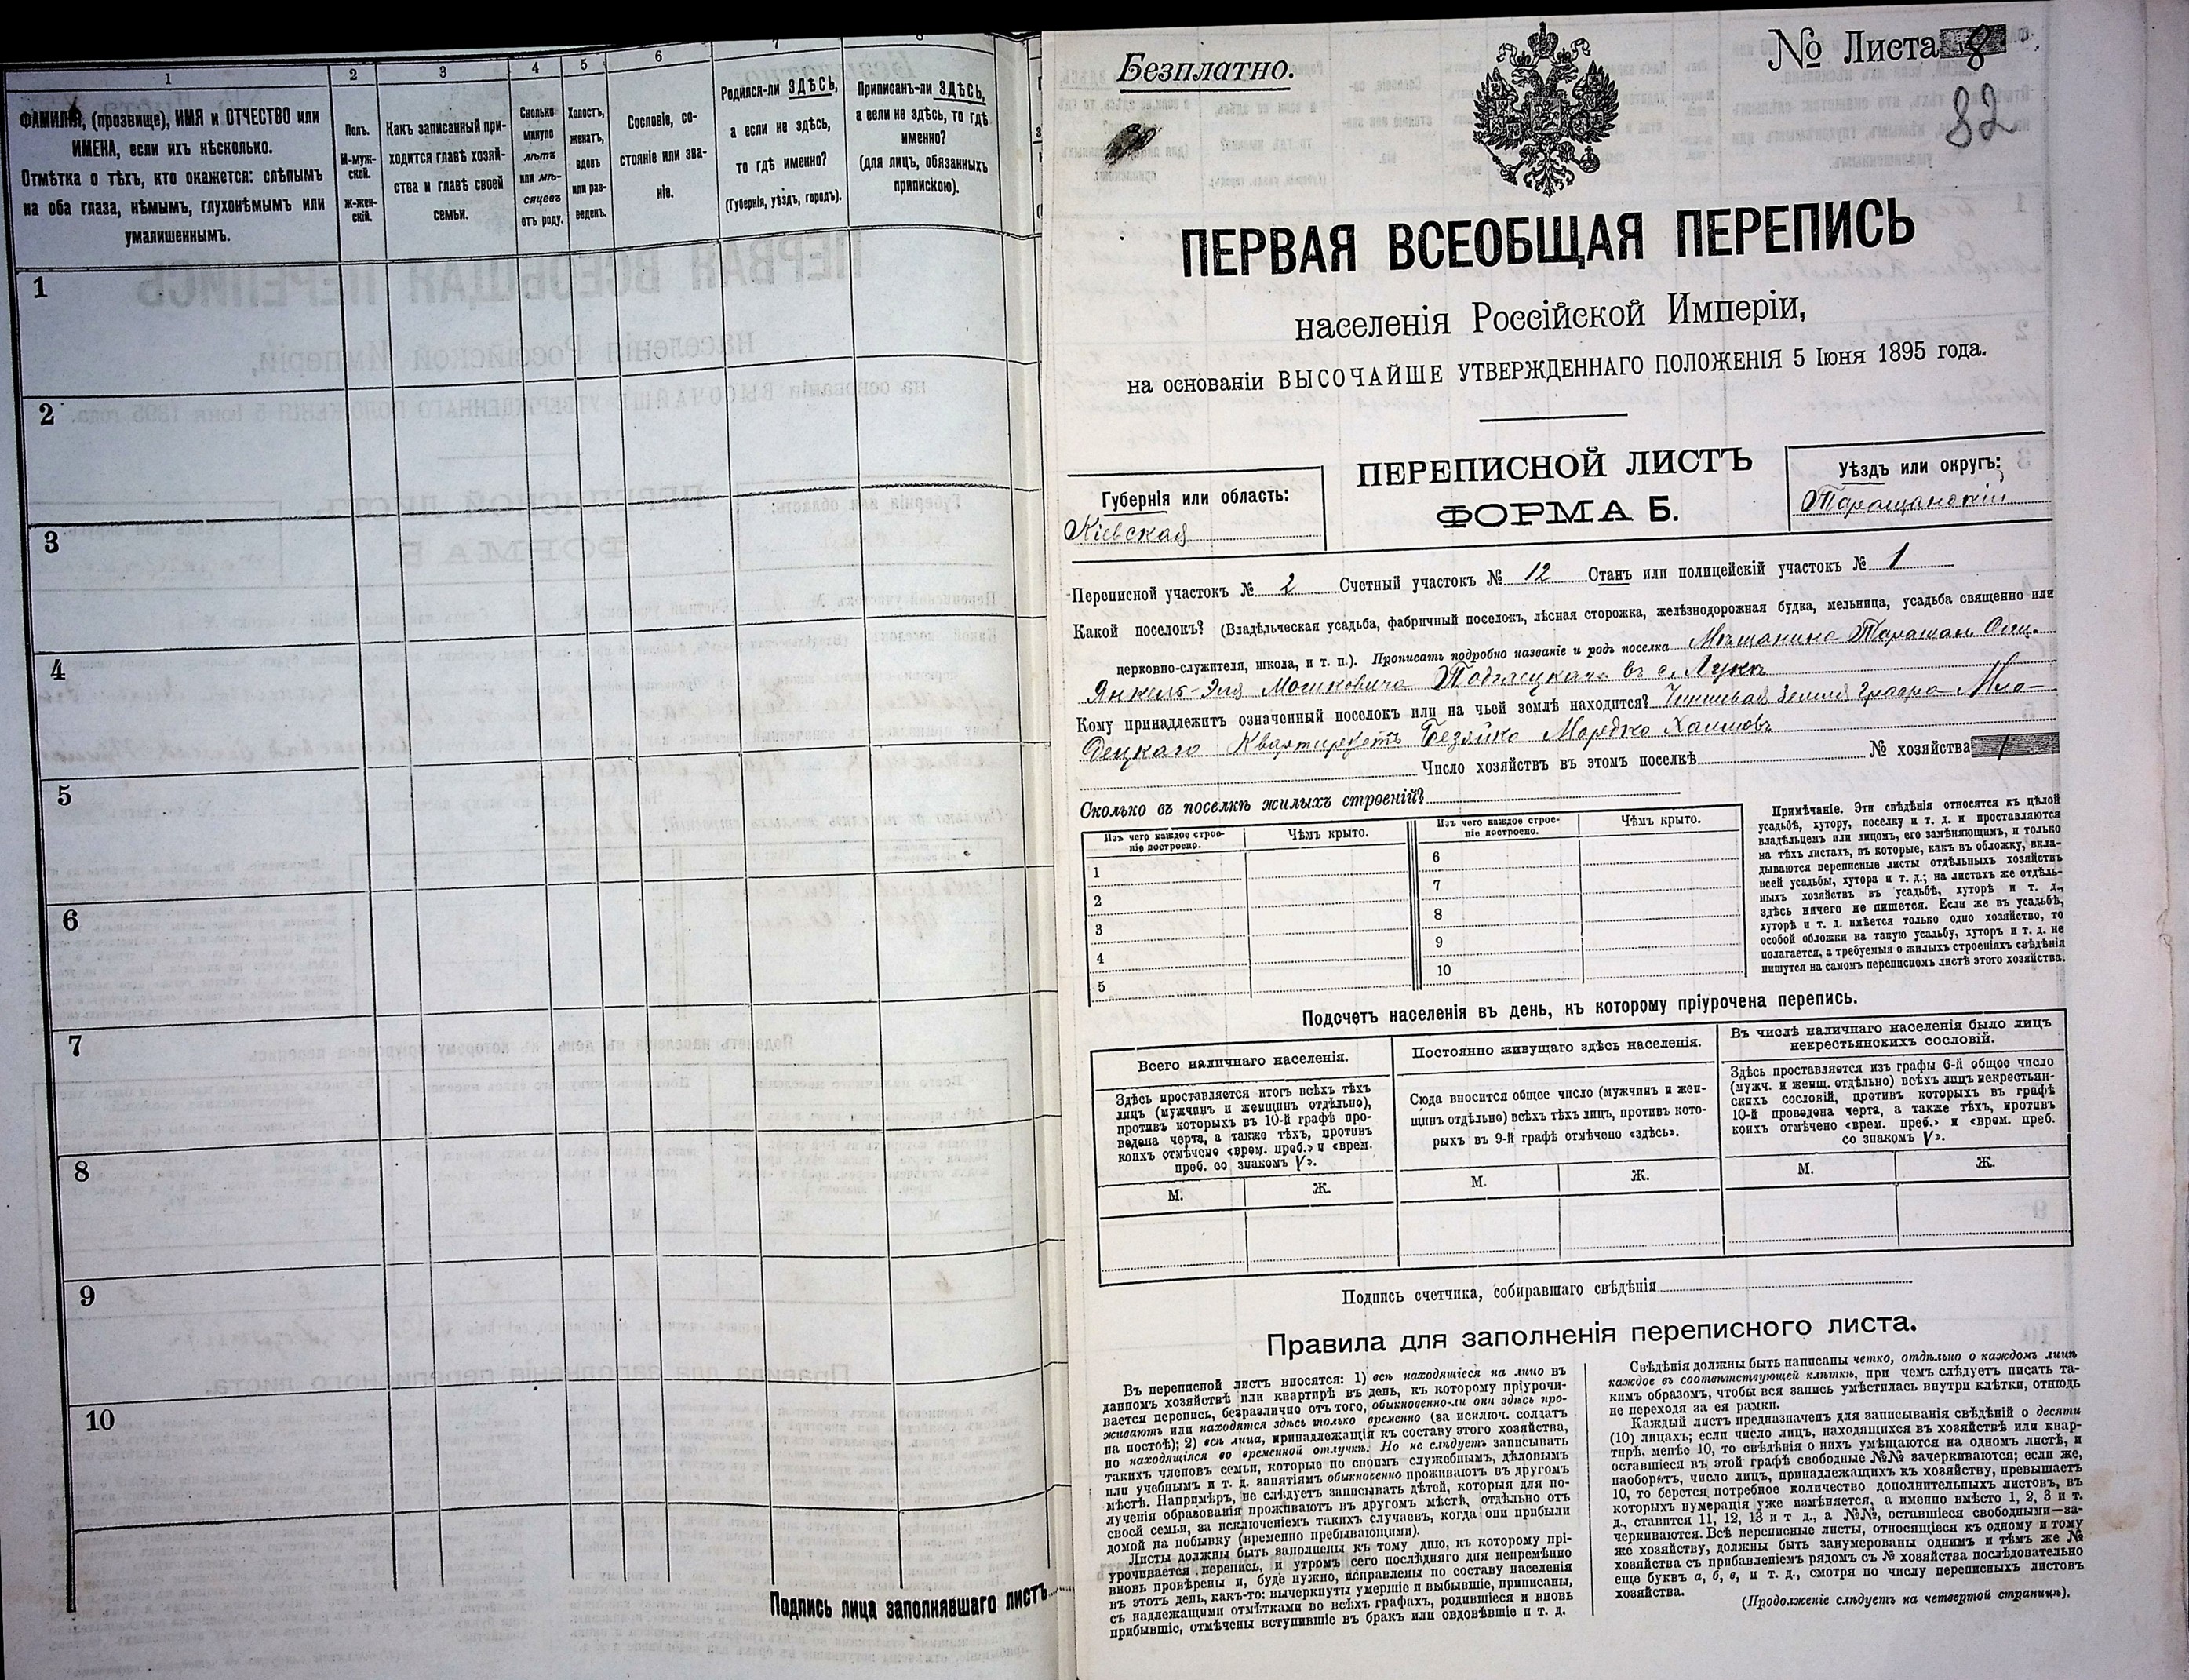 1
2
3
4
5
6
7
8
ФАМИЛІЯ, (прозвище), ИМЯ и ОТЧЕСТВО или
ИМЕНА, если ихъ нѣсколько.
Отмѣтка о тѣхъ, кто окажется: слѣпымъ
на оба глаза, нѣмымъ, глухонѣмымъ или
умалишеннымъ.
Полъ.
М-муж-
ской.
Ж-жен-
скій.
Какъ записанный при-
ходится главѣ хозяй-
ства и главѣ своей
семьи.
Сколько
минуло
лѣтъ
или мѣ-
сяцевъ
отъ роду.
Холостъ,
женатъ,
вдовъ
или раз-
веденъ.
Сословіе, со-
стояніе или зва-
ніе.
Родился-ли ЗДѢСЬ,
а если не здѣсь,
то гдѣ именно?
(Губернія, уѣздъ, городъ).
Приписанъ-ли ЗДѢСЬ,
а если не здѣсь, то гдѣ
именно?
(для лицъ, обязанныхъ
припискою).
1
2
3
4
5
6
7
8
9
10
Подпись лица заполнявшаго листъ
Безплатно.
№ Листа 8
82
ПЕРВАЯ ВСЕОБЩАЯ ПЕРЕПИСЬ
населенія Россійской Имперіи,
на основаніи ВЫСОЧАЙШЕ УТВЕРЖДЕННАГО ПОЛОЖЕНІЯ 5 Іюня 1895 года.
Губернія или область:
Кіевская
ПЕРЕПИСНОЙ ЛИСТЪ
ФОРМА Б.
Уѣздъ или округъ:
Таращанскій
Переписной участокъ № 2 Счетный участокъ № 12 Станъ или полицейскій участокъ № 1
Какой поселокъ? (Владѣльческая усадьба, фабричный поселокъ, лѣсная сторожка, желѣзнодорожная будка, мельница, усадьба священно или
церковно-служителя, школа, и т. п.). Прописать подробно названіе и родъ поселка Мѣщанина Таращан.
Янкель-Эля Мошковича въ с. Лукѣ
Кому принадлежитъ означенный поселокъ или на чьей землѣ находится? Чиншевая земля графа Мло-
децкаго Квартируетъ Безяйко Мордко Хаимовъ
Число хозяйствъ въ этомъ поселкѣ № хозяйства 1
Сколько въ поселкѣ жилыхъ строеній?
Изъ чего каждое строе-
ніе построено.
Чѣмъ крыто.
Изъ чего каждое строе-
ніе построено.
Чѣмъ крыто.
1
2
3
4
5
6
7
8
9
10
Примѣчаніе. Эти свѣдѣнія относятся къ цѣлой
усадьбѣ, хутору, поселку и т. д. и проставляются
владѣльцемъ или лицомъ, его замѣняющимъ, и только
на тѣхъ листахъ, въ которые, какъ въ обложку, вкла-
дываются переписные листы отдѣльныхъ хозяйствъ
всей усадьбы, хутора и т. д.; на листахъ же отдѣль-
ныхъ хозяйствъ въ усадьбѣ, хуторѣ и т. д.,
здѣсь ничего не пишется. Если же въ усадьбѣ,
хуторѣ и т. д. имѣется только одно хозяйство, то
особой обложки на такую усадьбу, хуторъ и т. д. не
полагается, а требуемыя о жилыхъ строеніяхъ свѣдѣнія
пишутся на самомъ переписномъ листѣ этого хозяйства.
Подсчетъ населенія въ день, къ которому пріурочена перепись.
Всего наличнаго населенія.
Здѣсь проставляется итогъ всѣхъ тѣхъ
лицъ (мужчинъ и женщинъ отдѣльно),
противъ которыхъ въ 10-й графѣ про-
ведена черта, а также тѣхъ, противъ
коихъ отмѣчено «врем. преб.» и «врем.
преб. со знакомъ V».
Постоянно живущаго здѣсь населенія.
Сюда вносится общее число (мужчинъ и жен-
щинъ отдѣльно) всѣхъ тѣхъ лицъ, противъ кото-
рыхъ въ 9-й графѣ отмѣчено «здѣсь».
Въ числѣ наличнаго населенія было лицъ
некрестьянскихъ сословій.
Здѣсь проставляется изъ графы 6-й общее число
(мужч. и женщ. отдѣльно) всѣхъ лицъ некрестьян-
скихъ сословій, противъ которыхъ въ графѣ
10-й проведена черта, а также тѣхъ, противъ
коихъ отмѣчено «врем. преб.» и «врем. преб.
со знакомъ V».
М.
Ж.
М.
Ж.
М.
Ж.
Подпись счетчика, собиравшаго свѣдѣнія
Правила для заполненія переписного листа.
Въ переписной листъ вносятся: 1) всѣ находящіеся на лицо въ
данномъ хозяйствѣ или квартирѣ въ день, къ которому пріурочи-
вается перепись, безразлично отъ того, обыкновенно-ли они здѣсь про-
живаютъ или находятся здѣсь только временно (за исключ. солдатъ
на постоѣ); 2) всѣ лица, принадлежащія къ составу этого хозяйства,
но находящіяся во временной отлучкѣ. Но не слѣдуетъ записывать
такихъ членовъ семьи, которые по своимъ служебнымъ, дѣловымъ
или учебнымъ и т. д. занятіямъ обыкновенно проживаютъ въ другомъ
мѣстѣ. Напримѣръ, не слѣдуетъ записывать дѣтей, которыя для по-
лученія образованія проживаютъ въ другомъ мѣстѣ, отдѣльно отъ
своей семьи, за исключеніемъ такихъ случаевъ, когда они прибыли
домой на побывку (временно пребывающими).
Листы должны быть заполнены къ тому дню, къ которому прі-
урочивается перепись, и утромъ сего послѣдняго дня непремѣнно
вновь провѣрены и, буде нужно, исправлены по составу населенія
въ этотъ день, какъ-то: вычеркнуты умершіе и выбывшіе, приписаны,
съ надлежащими отмѣтками во всѣхъ графахъ, родившіеся и вновь
прибывшіе, отмѣчены вступившіе въ бракъ или овдовѣвшіе и т. д.
Свѣдѣнія должны быть написаны четко, отдѣльно о каждомъ лицѣ
каждое въ соотвѣтствующей клѣткѣ, при чемъ слѣдуетъ писать та-
кимъ образомъ, чтобы вся запись умѣстилась внутри клѣтки, отнюдь
не переходя за ея рамки.
Каждый листъ предназначенъ для записыванія свѣдѣній о десяти
(10) лицахъ; если число лицъ, находящихся въ хозяйствѣ или квар-
тирѣ, менѣе 10, то свѣдѣнія о нихъ умѣщаются на одномъ листѣ, и
оставшіеся въ этой графѣ свободные №№ зачеркиваются; если же,
наоборотъ, число лицъ, принадлежащихъ къ хозяйству, превышаетъ
10, то берется потребное количество дополнительныхъ листовъ, въ
которыхъ нумерація уже измѣняется, а именно вмѣсто 1, 2, 3 и т.
д., ставится 11, 12, 13 и т д., а №№, оставшіеся свободными—за-
черкиваются. Всѣ переписные листы, относящіеся къ одному и тому
же хозяйству, должны быть занумерованы однимъ и тѣмъ же №
хозяйства съ прибавленіемъ рядомъ съ № хозяйства послѣдовательно
еще буквъ а, б, в, и т. д., смотря по числу переписныхъ листовъ
хозяйства.
(Продолженіе слѣдуетъ на четвертой страницѣ).